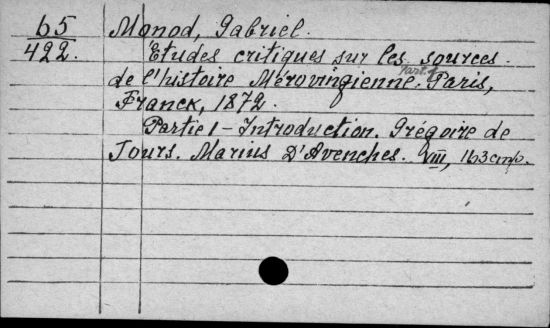 65
422.
Monod, Gabriel.
Études critiques sur les sources
de l'histoire Mérovingienne. Part. 1 Paris,
Franck, 1872.
Partie 1 – Introduction. Grégoire de
Tours. Marius D'Avenches. VIII, 163 стр.